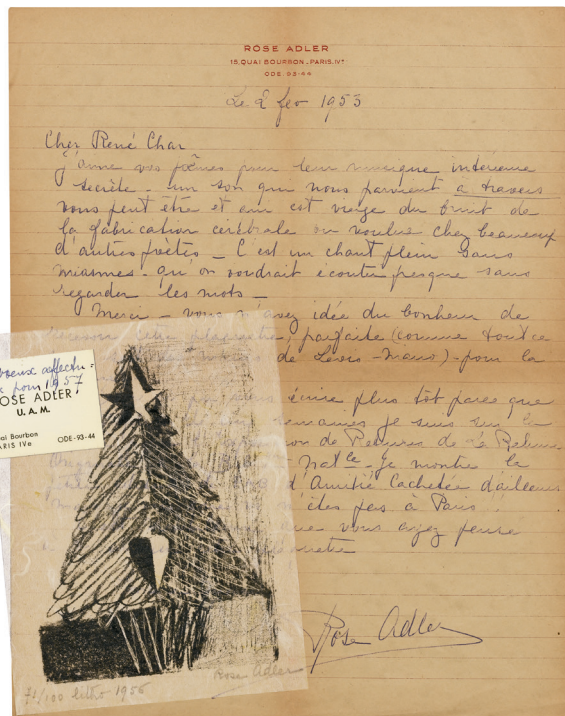 ROSE ADLER
15, QUAI BOURBON - PARIS. IVe
ODE. 93-44
Le 2 fev 1953
Cher René Char
j'aime vos poëmes pour leur musique intérieure
secrète - un son qui nous parvient a travers
vous peut être et qui est vierge du bruit de
la fabrication cérébrale ou voulue chez beaucoup
d'autres poètes - C'est un chant plein sans
miasmes - qu'on voudrait écouter presque sans
regarder les mots -
Merci - vous n'avez idée du bonheur de
parfaite (comme tout ce
de Levis-Mano) - pour la
plus tôt parce que
semaines je suis sur la
de Reliures de la Reliure
Natle - Je montre la
d'Amitié Cachetée d'ailleurs
êtes pas à Paris.
que vous ayez pensé
Rose Adler
voeux affectu:
pour 1957
ROSE ADLER
U. A. M.
Quai Bourbon
PARIS IVe ODE-93-44
71/100 litho 1956 Rose Adler